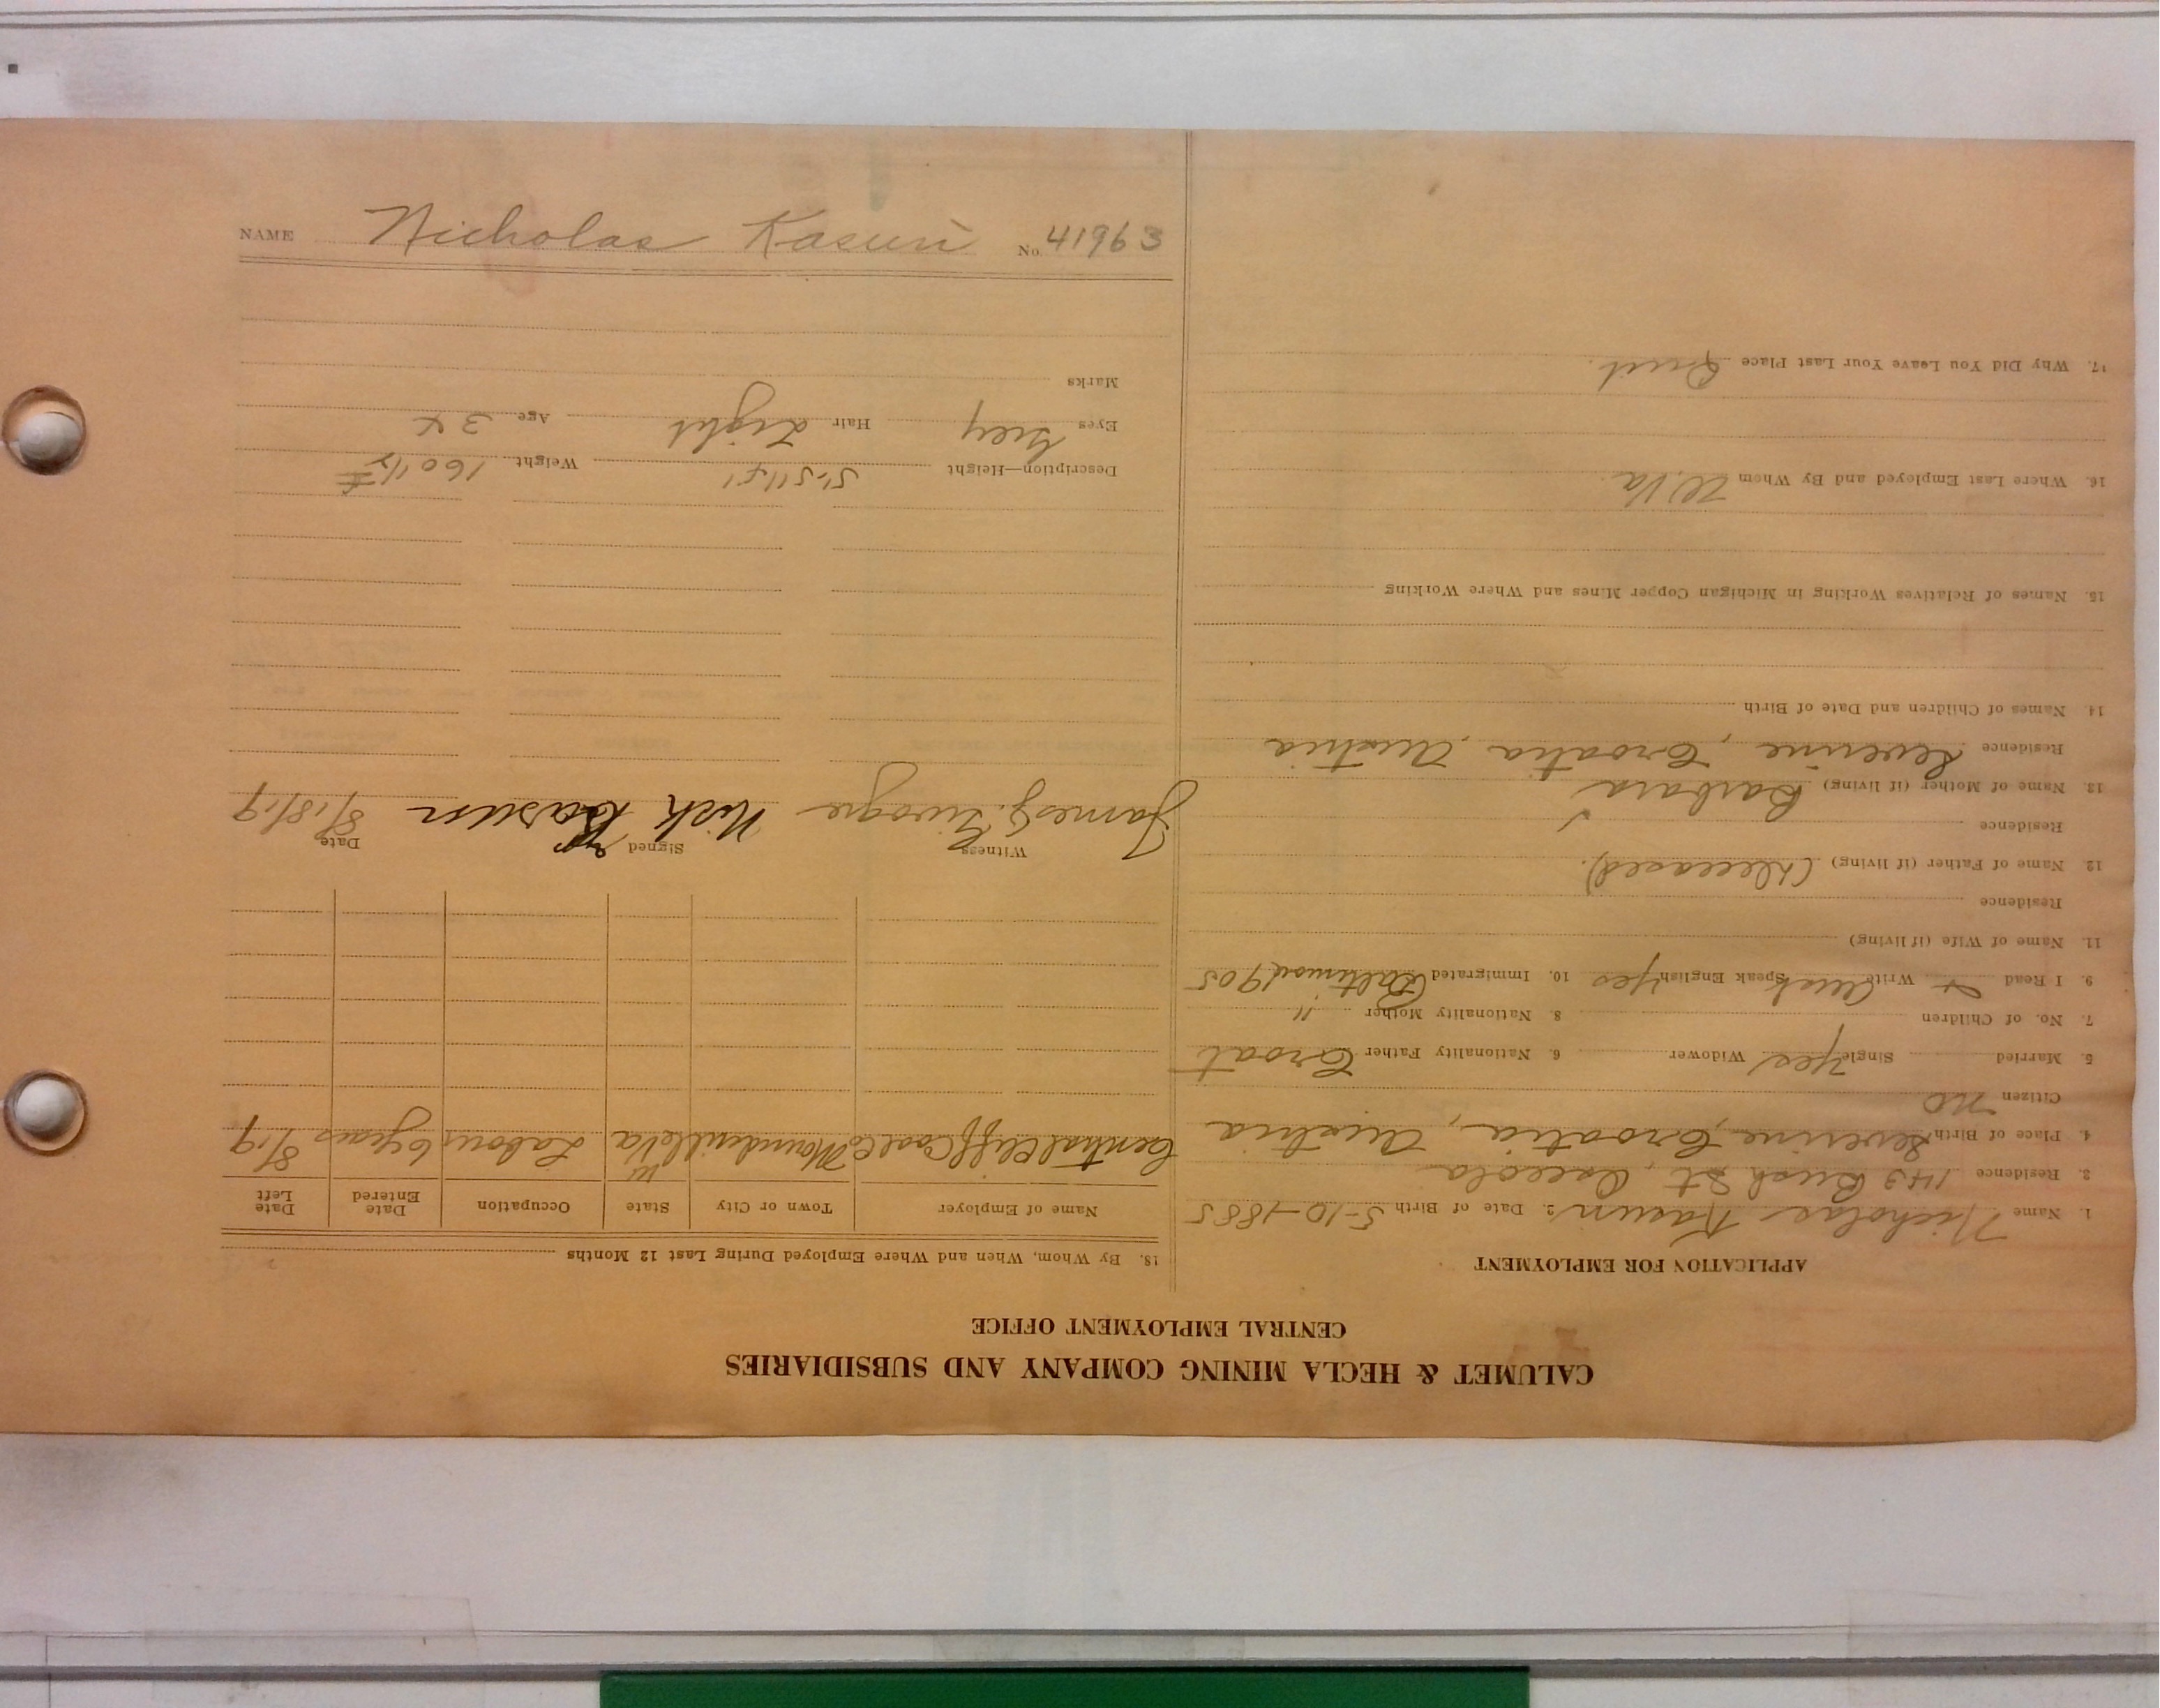 NAME Nicholas Kasun No. 41963
CALUMET & HECLA MINING COMPANY AND SUBSIDIARIES
CENTRAL EMPLOYMENT OFFICE
APPLICATION FOR EMPLOYMENT
1. Name Nicholas Kasun 2. Date of Birth 5-10-1885
3. Residence 143 Bush St, Osceola
4. Place of Birth Severine, Croatia, Austria
Citizen no
5. Married Single yes Widower 6. Nationality Father Croat
7. No. of Children 8. Nationality Mother "
9. I Read + Write Aust Speak English yes 10. Immigrated Baltimore 1905
11. Name of Wife (if living)
Residence
12. Name of Father (if living) (Deceased).
Residence
13. Name of Mother (if living) Barbara
Residence Severine, Croatia, Austria
14. Names of Children and Date of Birth
15. Names of Relatives Working in Michigan Copper Mines and Where Working
16. Where Last Employed and By Whom W.Va.
17. Why Did You Leave Your Last Place Quit.
18. By Whom, When and Where Employed During Last 12 Months
Name of Employer Town or City State Occupation Date Entered Date Left
Central Cliff Coal Co Moundsville W Va Labour 6 years 8/19
Witness Signed Date
James J. Nick Kasun 8/18/19
Description—Height 5'-5 1/2" Weight 160 1/2 #
Eyes Grey Hair Light Age 34
Marks